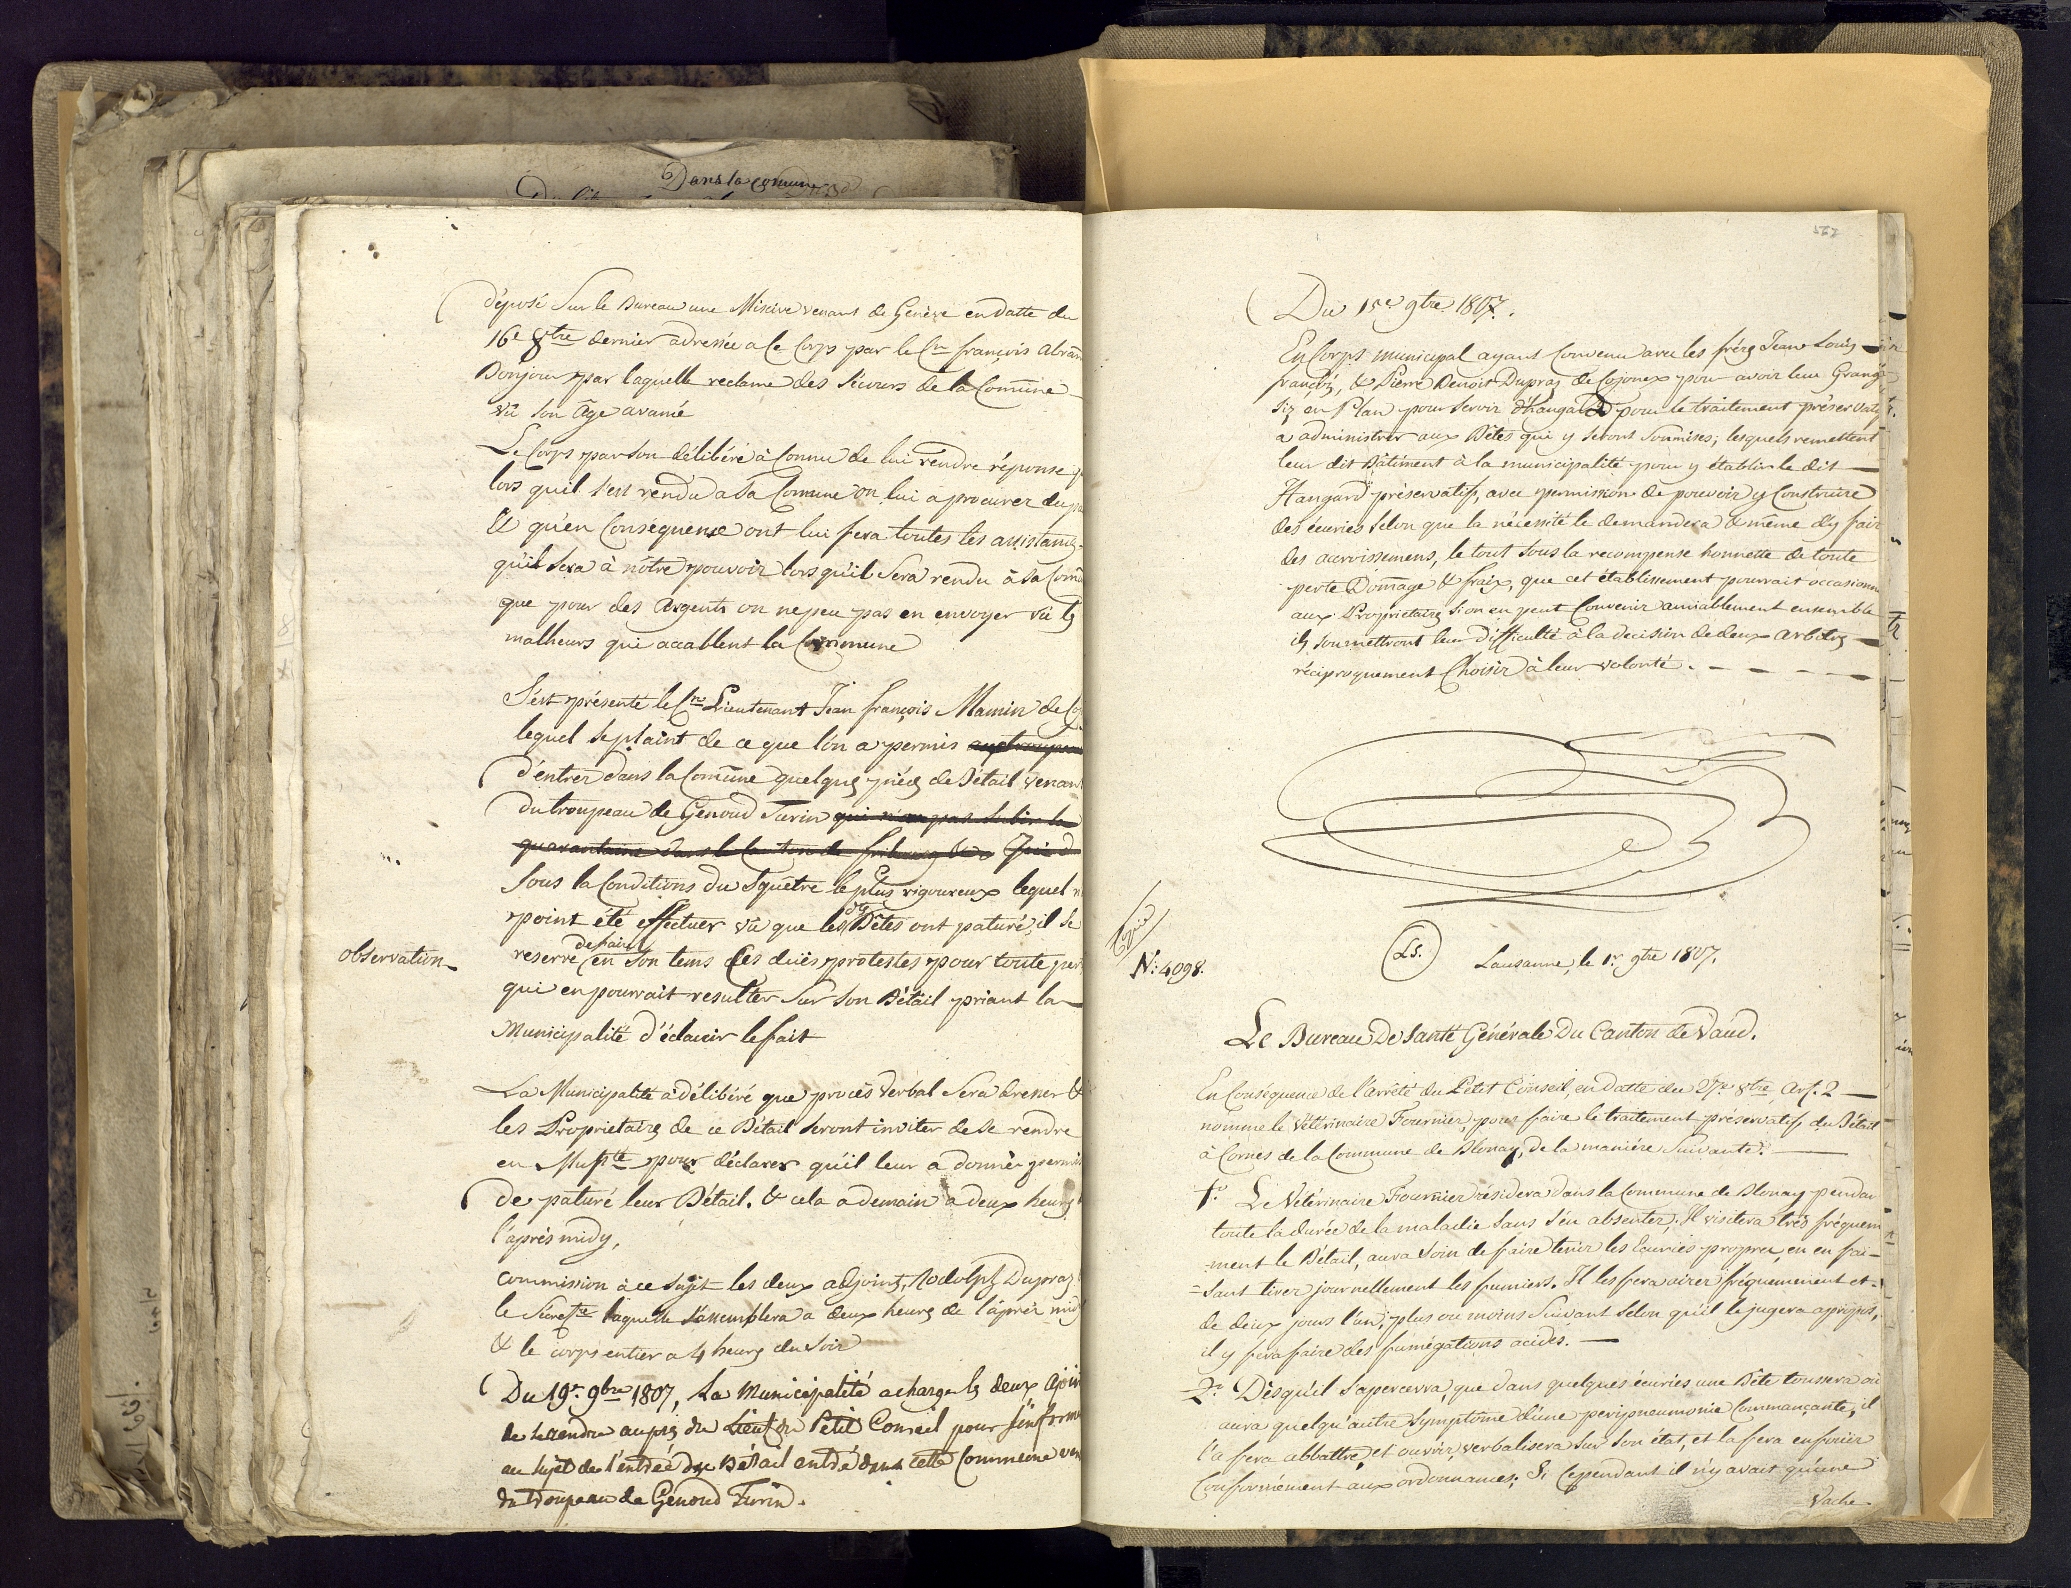 Dans la comune
déposé Sur le Bureau une Missive venant de Genève en datte du
16e 8bre dernier adressée a ce Corps par le Cn françois Abram
Bonjour par laquelle reclame des Secours de la Comune
vû son âge avancé
Le Corps par son délibéré à Connu de lui rendre réponse
lors quil s'est rendu a sa Comune on lui a procurer du
& qu'en Conséquence ont lui fera toutes les assistances
qu'il sera à nôtre pouvoir lorsqu'il Sera rendu à sa Com
que pour des Argents on ne peu pas en envoyer vû les
malheurs qui accablent la Commune
S'est présenté le Cn Lieutenant Jean françois Mamin de
lequel se plaint de ce que l'on a permis
d'entrer dans la Comune quelques piéces de Bétail venant
du troupeau de Genoud Turin qui n'ont pas Subir la
quarantaine dans le Canton de fribourg
Sous la Conditions du Squêtre le plus rigoureux lequel
point été effectuer vû que les dts Bêtes ont paturé, il se
observation
reserve de faire en son tems des dües protestes pour toute per
qui en pourrait resulter Sur son Bétail priant la
Municipalité d'éclaicir le fait
La Municipalité à délibéré que procès verbal Sera dresser &
les Proprietaires de ce Bétail Seront inviter de Se rendre
en Muplté pour déclarer qu'il leur a donner permis
de paturé leur Bétail. & cela a demain a deux heures
l'après midy,
commission à ce Sujet les deux adjoints, Rodolph Dupraz
le Sécrétre laquelle s'assemblera a deux heures de l'après midy
& le corps entier a 4 heures du Soir
Du 19e 9bre 1807, La Municipalité a charger ls deux Ajoin
de se rendre auprès du Lieut du Petit Conseil pour s'informer
au Sujet de l'entrée du Bétail entré dans cette Commune ven
du troupeau de Genoud Turin.
Du 15e 9bre 1807.
En Corps municipal ayant Convenu avec les frères Jean Louis
françois, & Pierre Benoit Dupraz de Cojonex pour avoir leur Grange
Siz en Plan pour Servir d'hangard pour le traitement préservatif
a administrer aux Bêtes qui y seront Soumises; lesquels remettent
leur dit Bâtiment à la municipalité pour y établir le dit
Hangard préservatif, avec permission de pouvoir y Construire
des écuries Selon que la nécessité le demandera & même d'y fair
des acroissemens, le tout sous la recompense honnette de toute
perte Domage & fraix, que cet établissement pourrait occasionn
aux Proprietaires Si on en peut Convenir amiablement ensemble
ils Soumettront leur difficulté à la decision de deux arbitres
réciproquement Choisir à leur volonté.
Copie
N: 4098.
LS.
Lausanne, le 1r 9bre 1807.
Le Bureau De Santé Générale Du Canton de Vaud.
En Conséquence de l'arrêté du Petit Conseil, en datte du 27e 8bre, Art. 2
nomme le Vétérinaire Fournier, pour faire le traitement préservatif du Bétail
à Cornes de la Commune de Blonay, de la manière Suivante:
1o. Le Vétérinaire Fournier résidera dans la Commune de Blonay pendan
toute la durée de la maladie Sans S'en absenter; Il visitera très fréquem
ment le Bétail, aura Soin de faire tenir les Ecuries propres, en en fai-
=sant tirer journellement les fumiers. Il les fera airer fréquemment et
de deux jours l'un, plus ou moins Suivant Selon qu'il le jugera apropos,
il y fera faire des fumégations acides.
2o. Dès qu'il S'apercevra, que dans quelques écuries une Bête toussera ou
aura quelqu'autre Symptôme d'une peripneumonie Commançante, il
l'a fera abbattre, et ouvrir, verbalisera Sur Son état, et la fera enfouir
Conformément aux ordonnances; Si Cependant il n'y avait qu'une
Vache